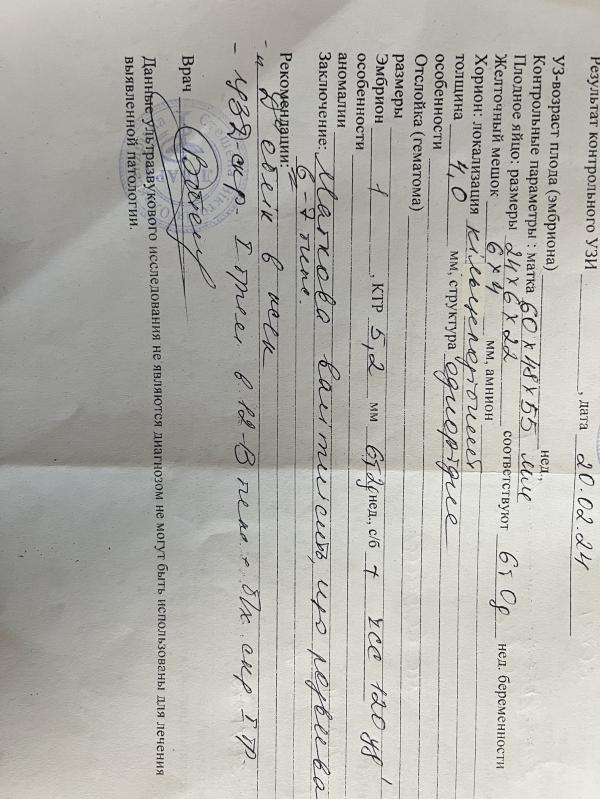 Результат контрольного УЗИ , дата 20.02.24
УЗ-возраст плода (эмбриона) нед.,
Контрольные параметры : матка 60 х 48 х 55 мм
Плодное яйцо: размеры 24 х 6 х 22 соответствуют 6т 0д нед. беременности
Желточный мешок 6 х 4 мм, амнион
Хорион: локализация
толщина 4,0 мм, структура однорідне
особенности
Отслойка (гематома)
размеры
Эмбрион 1 , КТР 5,2 мм 6т 2д нед., с/б + ЧСС 120 уд'
особенности
аномалии
Заключение: Маткова вагітність,
6-7 тиж.
Рекомендации:
- в 12-13
Врач
Данные ультразвукового исследования не являются диагнозом не могут быть использованы для лечения
выявленной патологии.